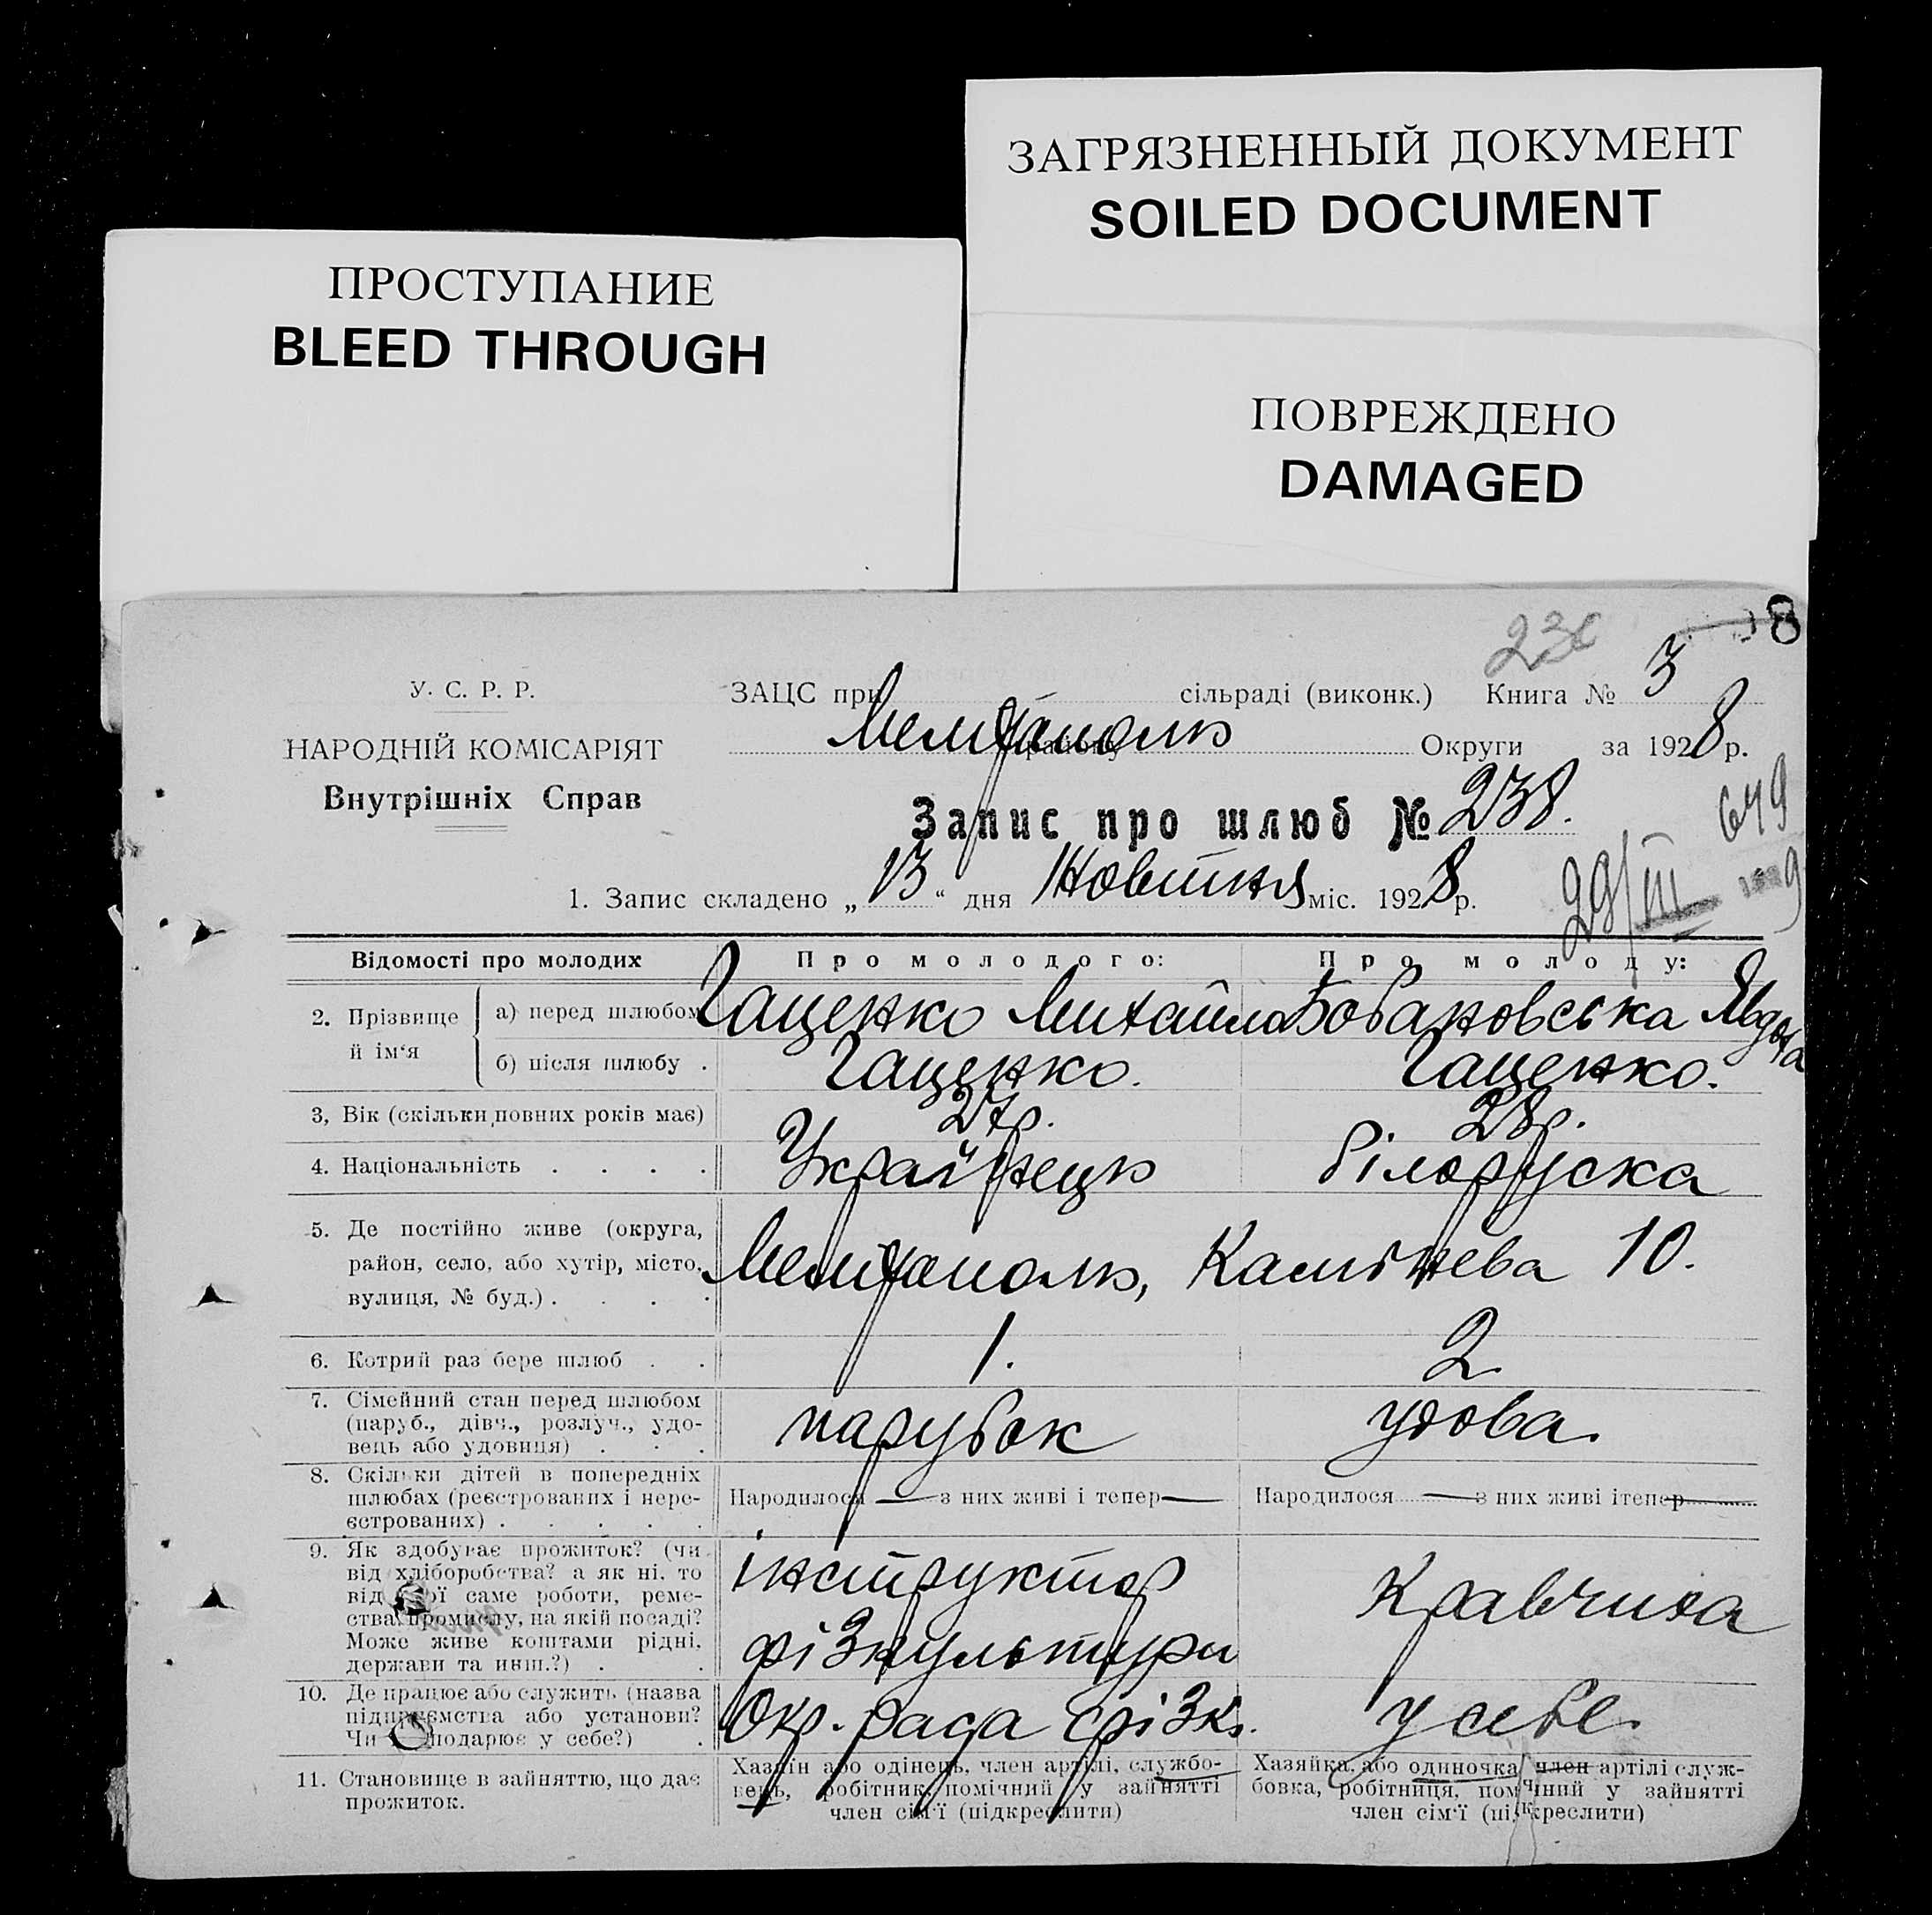 ЗАГРЯЗНЕННЫЙ ДОКУМЕНТ
SOILED DOCUMENT
ПРОСТУПАНИЕ
BLEED THROUGH
ПОВРЕЖДЕНО
DAMAGED
8
У. С. Р. Р.
НАРОДНІЙ КОМІСАРІЯТ
Внутрішніх Справ
ЗАЦС при сільраді (виконк.) Книга № 3
Мелітополь району Округи за 1928 р.
Запис про шлюб № 238.
649
29/III 1929
1. Запис складено „13“ дня Жовтня міс. 1928 р.
Відомості про молодих Про молодого: Про молоду:
2. Прізвище й ім‘я
а) перед шлюбом Гаценко Михайло Бобановська Явдоха
б) після шлюбу . Гаценко. Гаценко.
3, Вік (скільки повних років має) 27р. 28р.
4. Національність . . . . Українець білоруска
5. Де постійно живе (округа,
район, село, або хутір, місто,
вулиця, № буд.) . . . .
Мелітополь, Камінева 10.
6. Котрий раз бере шлюб . . 1. 2
7. Сімейний стан перед шлюбом
(паруб., дівч., розлуч., удо-
вець або удовиця) . . .
парубок удова.
8. Скільки дітей в попередніх
шлюбах (реєстрованих і нере-
єстрованих) . . . . .
Народилося — з них живі і тепер — Народилося — з них живі і тепер —
9. Як здобуває прожиток? (чи
від хліборобства? а як ні, то
від якої саме роботи, реме-
ства, промислу, на якій посаді?
Може живе коштами рідні,
держави та инш.?) . .
інструктор
фізкультури
Кравчиха
10. Де працює або служить (назва
підприємства або установи?
Чи господарює у себе?) .
Окр. рада фізк. у себе.
11. Становище в зайняттю, що дає
прожиток.
Хазяїн або одінець, член артілі, службо-
вець, робітник, помічний у зайнятті
член сім‘ї (підкреслити)
Хазяйка, або одиночка член артілі служ-
бовка, робітниця, помічний у зайнятті
член сім‘ї (підкреслити)